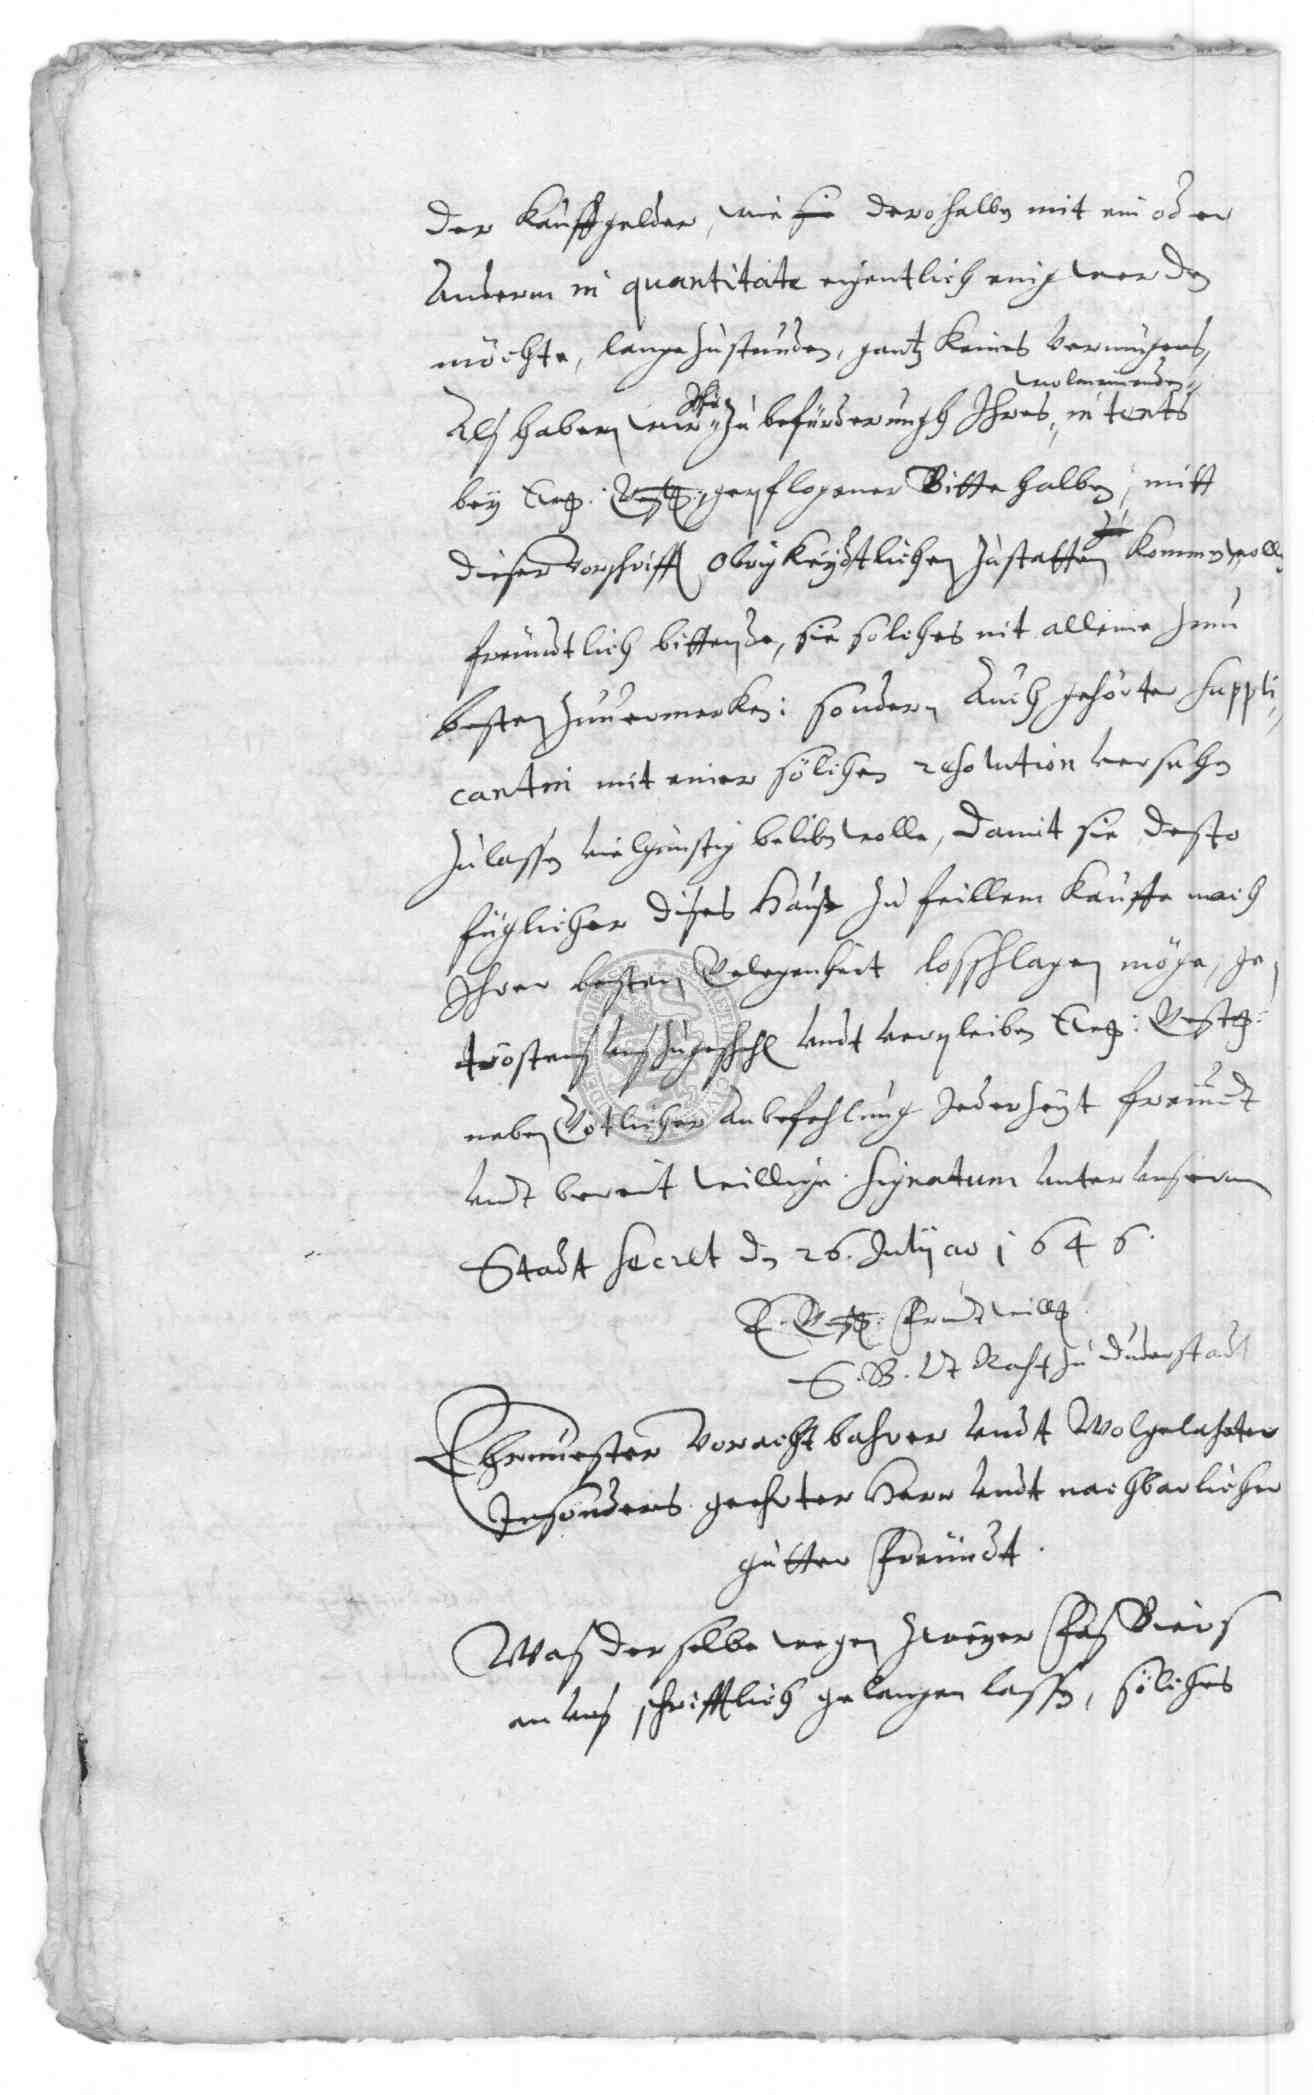 der Kauffgelder, wie sie derohalbn mit ein oder
Anderm in quantitate eigentlich einig werden
möchte, lange zustunden, gantz keines vermugens,
wolmeinenden
Alß haben wir Ihr zu befürderungh Ihres intents
bey Ewg. Vestg. gepflogener Bitte halben, mitt
dieser vorschrifft Obrigkeydtlichen zustatten kommen wolln
freundtlich bittende, sie solches nit alleine zum
besten zuuermerken: sondern Auch gehörter suppli„
cantin mit einer solchen resolution versehn
zulassen vielgünstig belibn wolle, damit sie desto
füglicher dises Hauß zu feillem Kauffe nach
Ihrer besten Gelegenheit losschlagen möge, ge„
trösten unß zugeschehn undt verpleiben Ewg: Vestg:
neben Götlicher anbefehlung Jederzeyt freundt
undt bereit willige. Signatum unter unserm
Stadt Secret dn 26. Julij ao 1646.
E. Vestg. Freundtwillg
S. B. Vt Raht zu Duderstadt
Ehrnuester Vorachtbahrer undt Wolgelahrter
Insonders geehrter Herr undt nachbarlicher
gutter Freundt.
Waß derselbe wegen zweyer Faß Biers
an unß schrifftlich gelangen lassen, solches